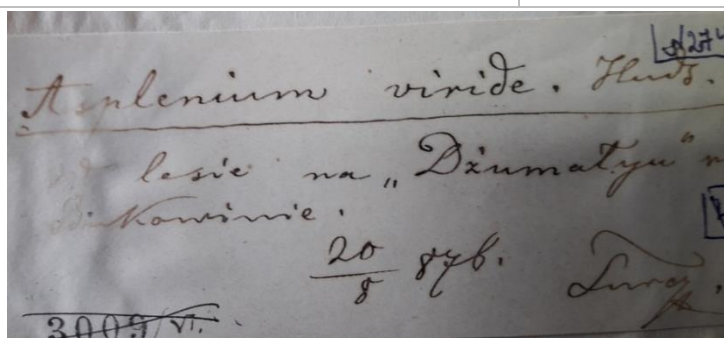 Asplenium viride. Huds.
lesie na „Dżumałyu"
Bukowinie.
20
8 876.
3009/VI.